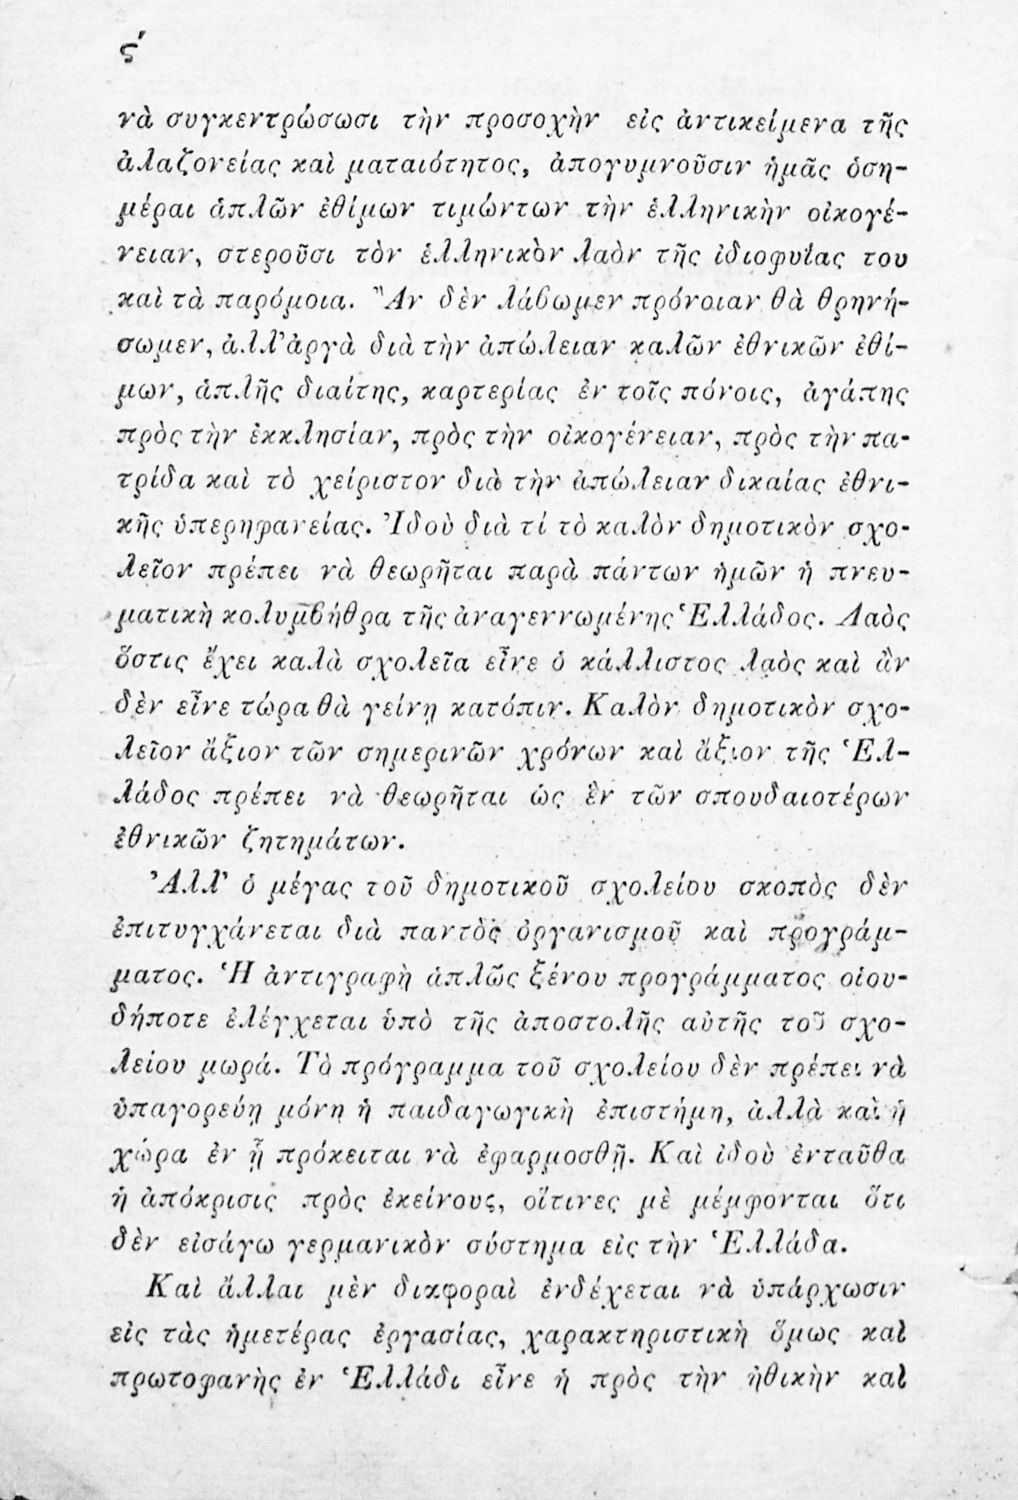 ϛ′
νὰ συγκεντρώσωσι τὴν προσοχὴν εἰς ἀντικείμενα τῆς
ἀλαζονείας καὶ ματαιότητος, ἀπογυμνοῦσιν ἡμᾶς ὁση-
μέραι ἁπλῶν ἐθίμων τιμώντων τὴν ἑλληνικὴν οἰκογέ-
νειαν, στεροῦσι τὸν ἑλληνικὸν λαὸν τῆς ἰδιοφυΐας του
καὶ τὰ παρόμοια. Ἂν δὲν λάβωμεν πρόνοιαν θὰ θρηνή-
σωμεν, ἀλλ' ἀργὰ διὰ τὴν ἀπώλειαν καλῶν ἐθνικῶν ἐθί-
μων, ἁπλῆς διαίτης, καρτερίας ἐν τοῖς πόνοις, ἀγάπης
πρὸς τὴν ἐκκλησίαν, πρὸς τὴν οἰκογένειαν, πρὸς τὴν πα-
τρίδα καὶ τὸ χείριστον διὰ τὴν ἀπώλειαν δικαίας ἐθνι-
κῆς ὑπερηφανείας. Ἰδοὺ διὰ τί τὸ καλὸν δημοτικὸν σχο-
λεῖον πρέπει νὰ θεωρῆται παρὰ πάντων ἡμῶν ἡ πνευ-
ματικὴ κολυμβήθρα τῆς ἀναγεννωμένης Ἑλλάδος. Λαὸς
ὅστις ἔχει καλὰ σχολεῖα εἶνε ὁ κάλλιστος λαὸς καὶ ἂν
δὲν εἶνε τώρα θὰ γείνῃ κατόπιν. Καλὸν δημοτικὸν σχο-
λεῖον ἄξιον τῶν σημερινῶν χρόνων καὶ ἄξιον τῆς Ἑλ-
λάδος πρέπει νὰ θεωρῆται ὡς ἓν τῶν σπουδαιοτέρων
ἐθνικῶν ζητημάτων.
Ἀλλ' ὁ μέγας τοῦ δημοτικοῦ σχολείου σκοπὸς δὲν
ἐπιτυγχάνεται διὰ παντὸς ὀργανισμοῦ καὶ προγράμ-
ματος. Ἡ ἀντιγραφὴ ἁπλῶς ξένου προγράμματος οἱου-
δήποτε ἐλέγχεται ὑπὸ τῆς ἀποστολῆς αὐτῆς τοῦ σχο-
λείου μωρά. Τὸ πρόγραμμα τοῦ σχολείου δὲν πρέπει νὰ
ὑπαγορεύῃ μόνη ἡ παιδαγωγικὴ ἐπιστήμη, ἀλλὰ καὶ ἡ
χώρα ἐν ᾗ πρόκειται νὰ ἐφαρμοσθῇ. Καὶ ἰδοὺ ἐνταῦθα
ἡ ἀπόκρισις πρὸς ἐκείνους, οἵτινες μὲ μέμφονται ὅτι
δὲν εἰσάγω γερμανικὸν σύστημα εἰς τὴν Ἑλλάδα.
Καὶ ἄλλαι μὲν διαφοραὶ ἐνδέχεται νὰ ὑπάρχωσιν
εἰς τὰς ἡμετέρας ἐργασίας, χαρακτηριστικὴ ὅμως καὶ
πρωτοφανὴς ἐν Ἑλλάδι εἶνε ἡ πρὸς τὴν ἠθικὴν καὶ